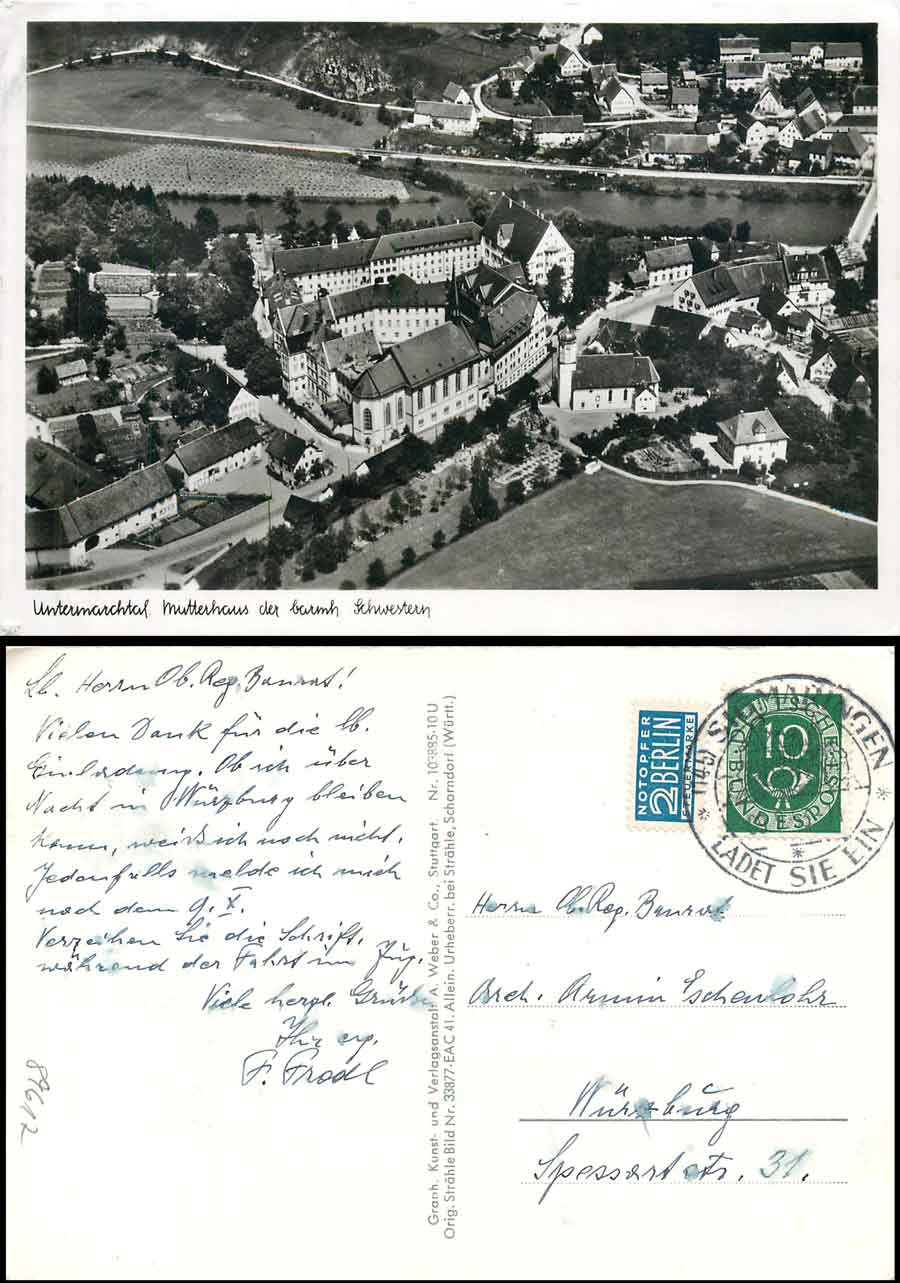 Untermarchtal. Mutterhaus der barmh Schwestern
Lb. Herrn Ob. Reg. Baurat!
Vielen Dank für die lb.
Einladung. Ob ich über
Nacht in Würzburg bleiben
kann, weiß ich noch nicht.
Jedenfalls melde ich mich
nach dem 9. X.
Verzeihen Sie die Schrift,
während der Fahrt im Zug.
Viele herzl. Grüße
Ihr erg.
F. Frodl
87612
Graph. Kunst- und Verlagsanstalt A. Weber & Co., Stuttgart, Nr. 103885-10 U
Orig. Strähle Bild Nr. 33877-EAC 41. Allein. Urheberr. bei Strähle, Schorndorf (Württ.)
NOTOPFER
2 BERLIN
STEUERMARKE
DEUTSCHE
10
BUNDESPOST
SIGMARINGEN
LADET SIE EIN
Herrn Ob. Reg. Baurat
Arch. Armin Eschenlohr
Würzburg
Spessartstr. 31.